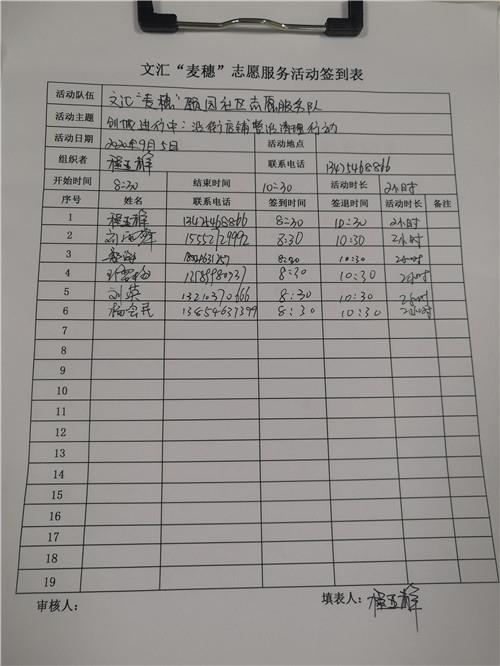 文汇“麦穗”志愿服务活动签到表
活动队伍 文汇“麦穗”颐园社区志愿服务队
活动主题 创城进行中：沿街店铺整治清理行动
活动日期 2020年9月5日 活动地点
组织者 程玉辉 联系电话 13475468866
开始时间 8:30 结束时间 10:30 活动时长 2小时
序号 姓名 联系电话 签到时间 签退时间 活动时长 备注
1 程玉辉 13475468866 8:30 10:30 2小时
2 15552729992 8:30 10:30 2小时
3 8:30 10:30 2小时
4 8:30 10:30 2小时
5 刘英 8:30 10:30 2小时
6 杨会民 13454637399 8:30 10:30 2小时
7
8
9
10
11
12
13
14
15
16
17
18
19
审核人： 填表人：程玉辉